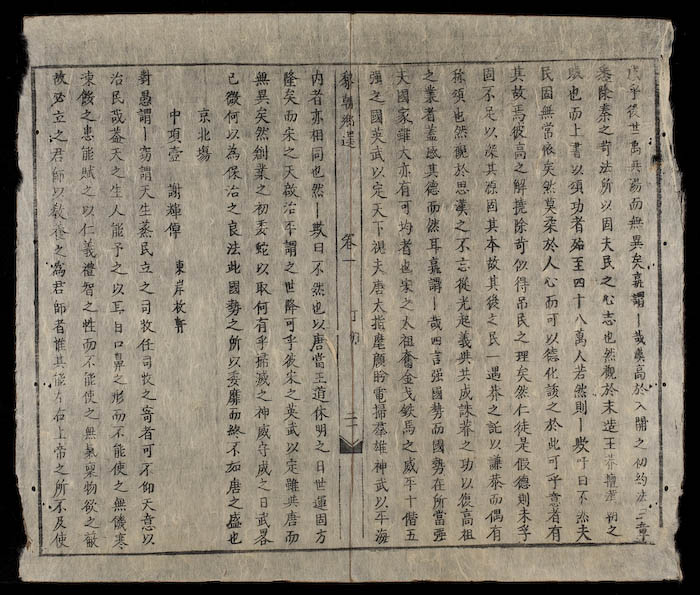 乎後世萬湯而無異矣嘉謂丨哉漢高於入關之初約法三章
悉除秦之苛法所以固夫民之心志也然觀於末造王莽擅漢朝之
賊也而上書以頌功者殆至四十八萬人若然則丨歟吁曰不然夫
民固無常依矣然莫柔於人心而可以德化該之於此可乎意者有
其故焉彼高之解擾除苛似得吊民之理矣然仁徒是假德則未孚
固不足以深其源固其本故其後之民一遇莽之託以謙恭而偶有
稱頌也然觀於思漢之不忘從光起義與共成誅莽之功以復高祖
之業者蓋感其德而然耳嘉謂丨哉四言强國勢而國勢在所當强
大國家雖大亦有可均者也宋之太祖奮金戈鉄馬之威平十偕五
强之國英武以定天下視夫唐太指麾顧眄電掃群雄神武以平海
黎朝鄉選 卷一
内者亦相同也然丨歟曰不然也以唐當王道休明之日世運固方
隆矣而宋之天啟治平謂之世降可乎彼宋之英武以定雖與唐而
無異矣然創業之初委蛇以取何有乎掃滅之神威守成之日武畧
已微何以為保治之良法此國勢之所以委靡而終不如唐之盛也
京北塲
中項壹 謝輝倬 東岸枚
對愚謂丨窃謂天生蒸民立之司牧任司牧之寄者可不仰天意以
治民哉蓋天之生人能予之以耳目口鼻之形而不能使之無饑寒
凍餒之患能賦之以仁義禮智之性而不能使之無氣稟物欲之蔽
故必立之君師以教養之為君師者惟其能左右上帝之所不及使